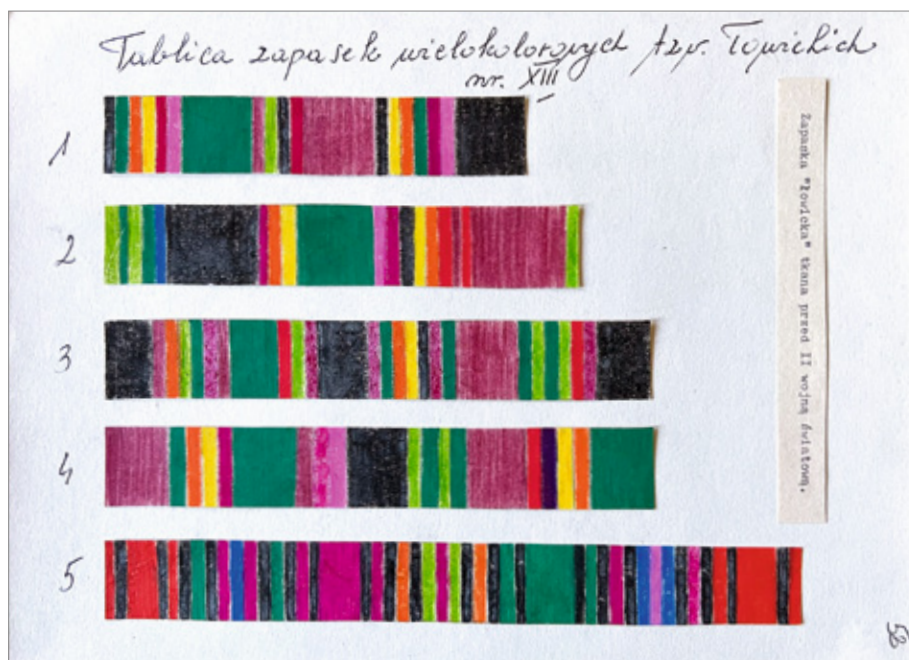 Tablica zapasek wielokolorowych tzw. Łowickich
nr. XIII
1
2
3
4
5
Zapaska "Łowicka" tkana przed II wojną światową.